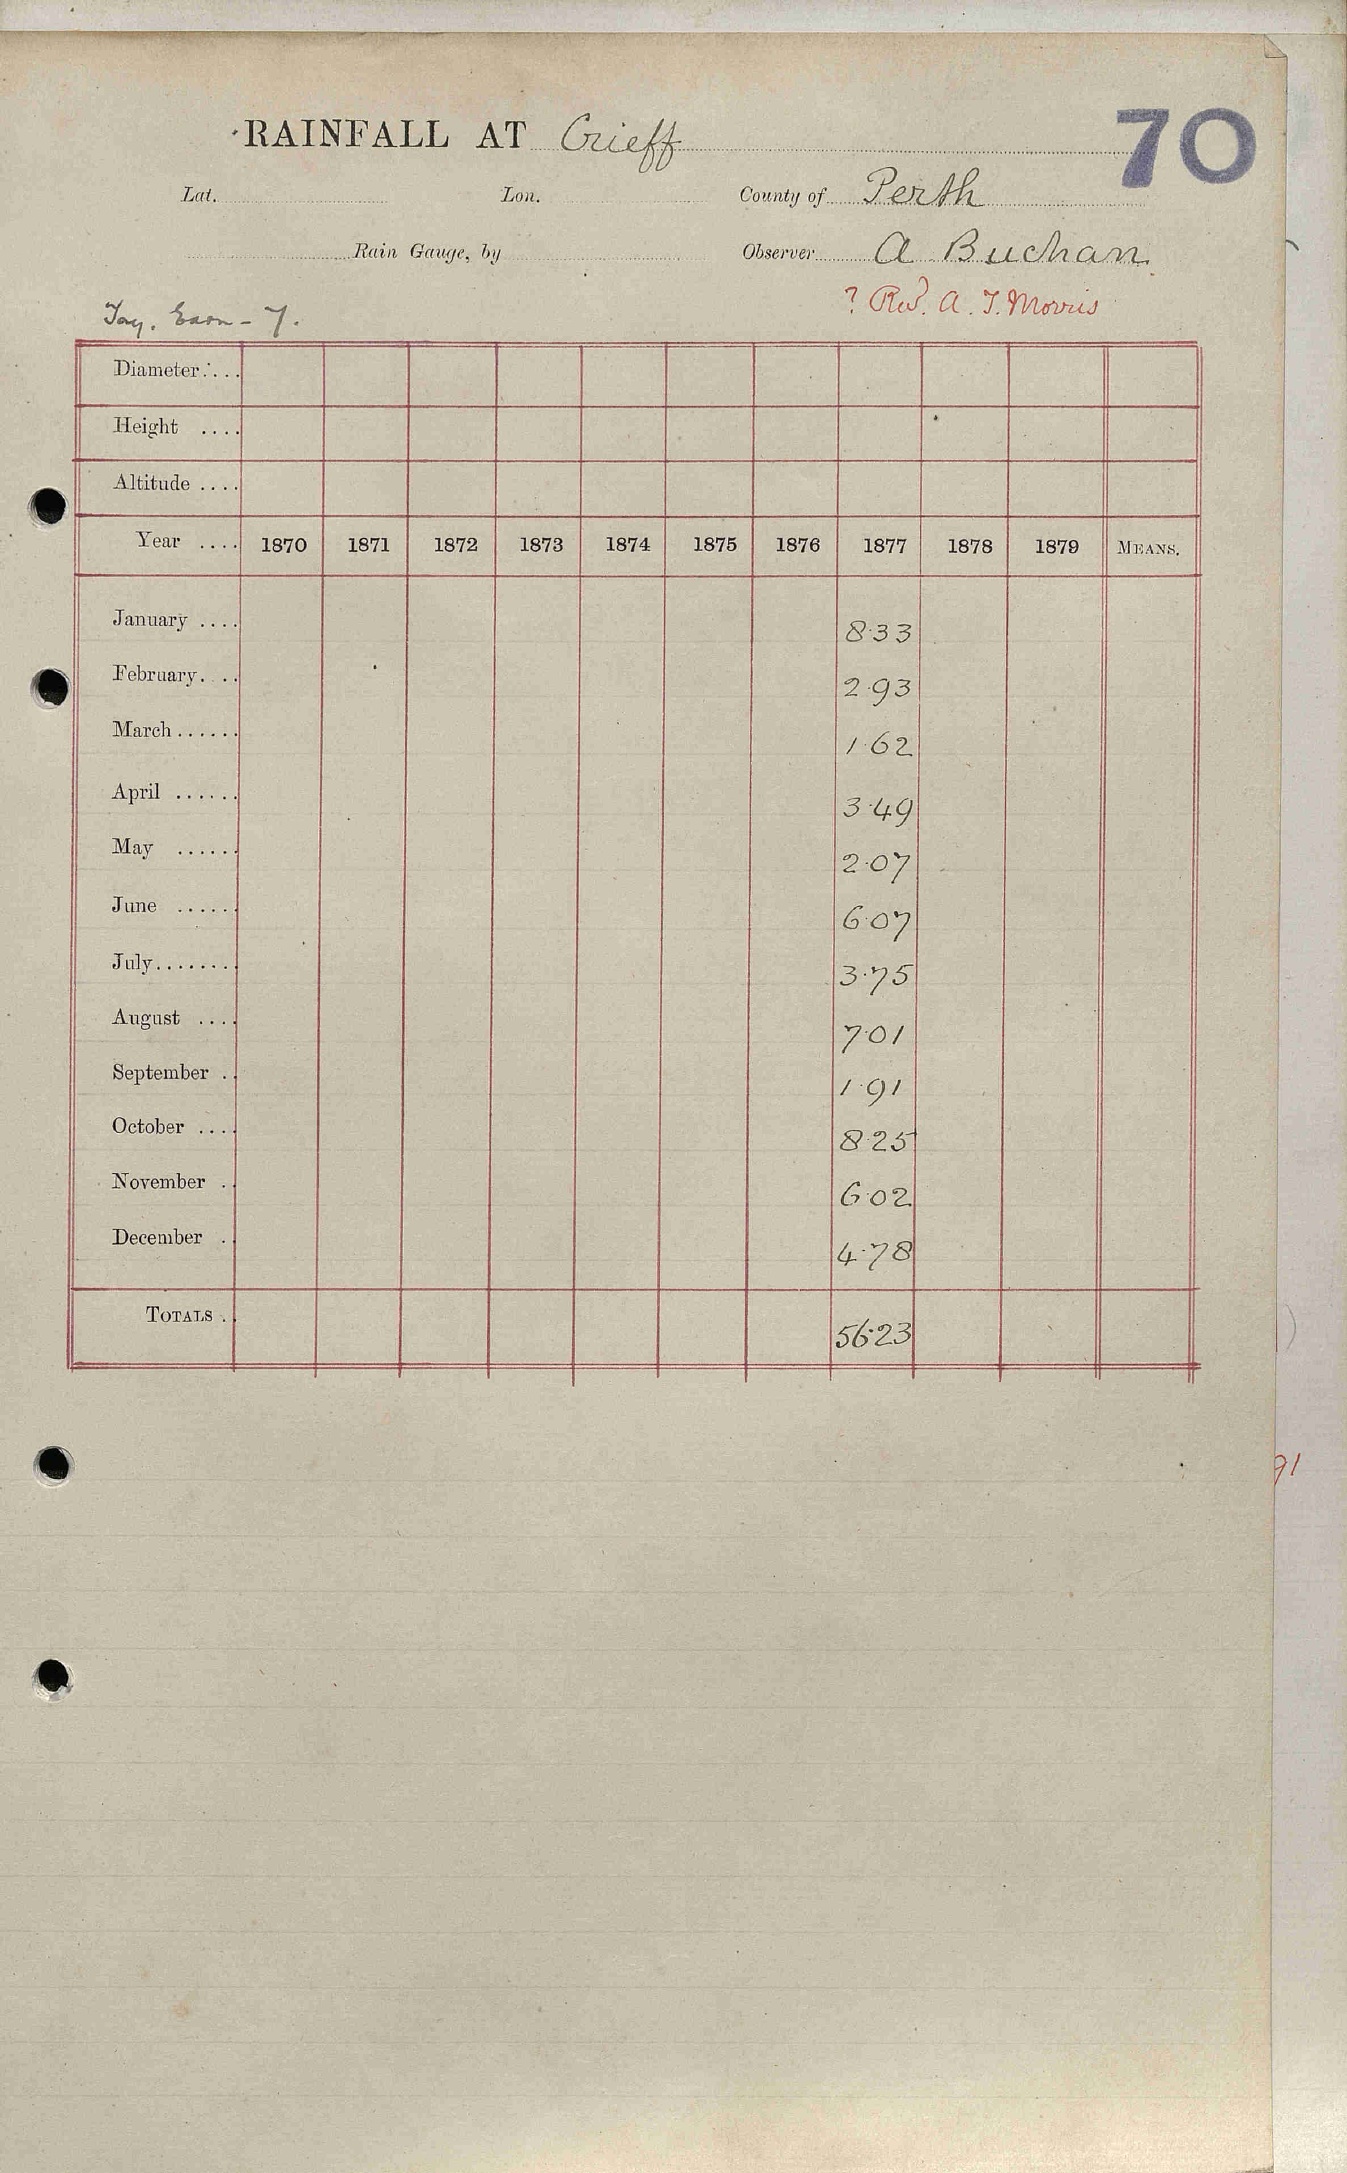 RAINFALL AT Crieff 70
Lat. Lon. County of Perth
Rain Gauge, by Observer A Buchan
? Revd. A. T. Morris
Tay. Earn - 7.
Diameter....
Height ....
Altitude ....
Year .... 1870 1871 1872 1873 1874 1875 1876 1877 1878 1879 MEANS.
January .... 8.33
February.... 2.93
March...... 1.62
April ...... 3.49
May ...... 2.07
June ...... 6.07
July........ 3.75
August .... 7.01
September .. 1.91
October .... 8.25
November . 6.02
December . 4.78
TOTALS . 56.23
91